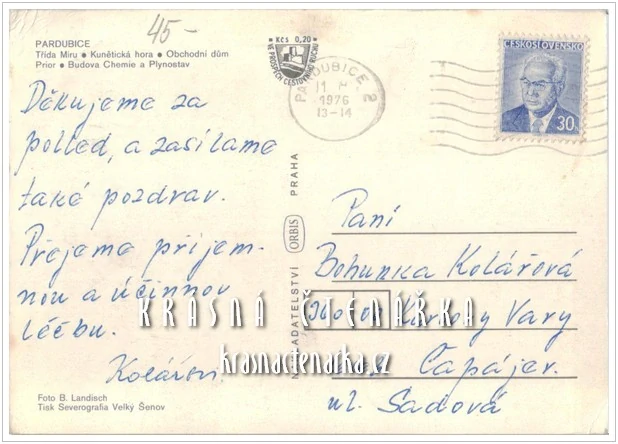 45-
PARDUBICE
Třída Míru • Kunětická hora • Obchodní dům
Prior • Budova Chemie a Plynostav
Kčs 0,20
VE PROSPĚCH CESTOVNÍHO RUCHU
PARDUBICE 2
1976
13-14
ČESKOSLOVENSKO
30
Děkujeme za
pohled, a zasíláme
také pozdrav.
Přejeme příjem-
nou a účinnou
léčbu.
Kolářovi
NAKLADATELSTVÍ ORBIS PRAHA
Paní
Bohunka Kolářová
Karlovy Vary
Čapájev
ul. Sadová
KRÁSNÁ ČTENÁŘKA
krasnactenarka.cz
Foto B. Landisch
Tisk Severografia Velký Šenov